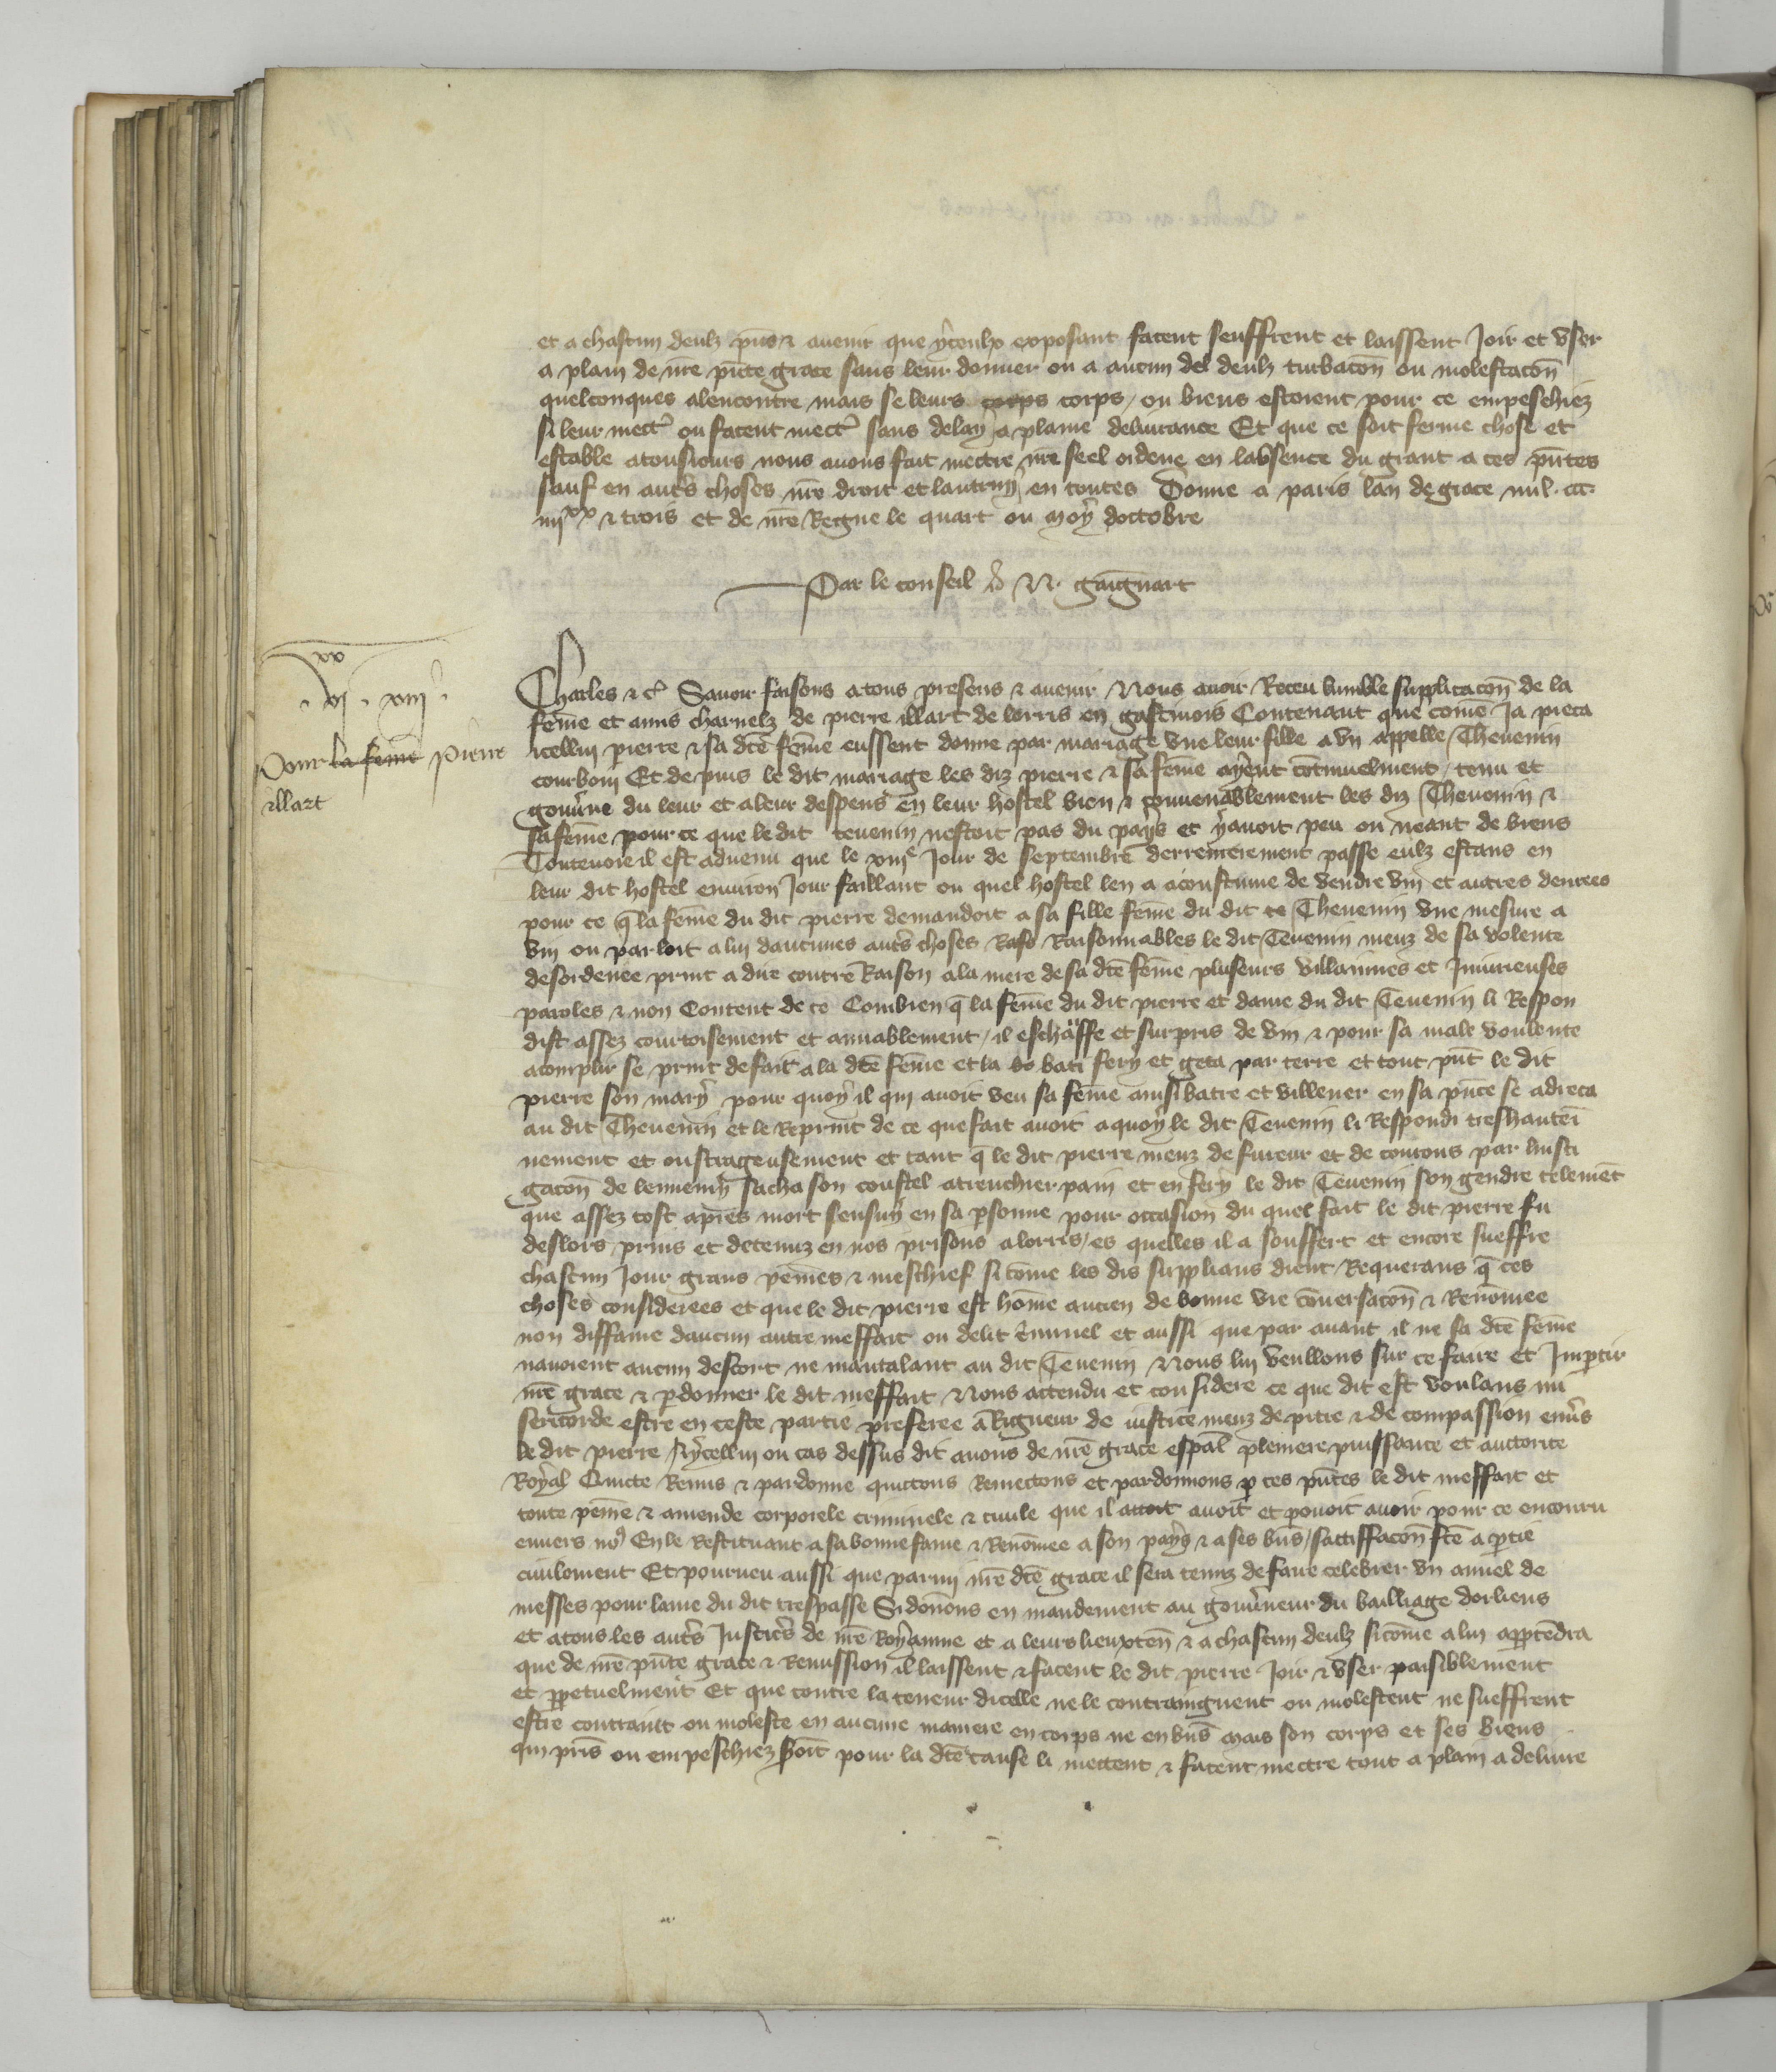 et a chascun deulz pns & avenir que yceulx exposant facent seuffrent et laissent Joir et user
a plain de nre pnte grace sans leur donner ou a aucun del deulz turbacon ou molestacon
quelconques alencontre mais se leurs corps corps / ou biens estoient pour ce empeschiez
si leur mectt ou facent mectt sans delay a plaine delivrance Et que ce soit ferme chose et
estable atousiours nous avons fait mectre nre seel ordene en labsence du grant a ces pntes
sauf en autres choses nre droit et lautruy en toutes Donne a paris lan de grace mil. ccc.
iiijxx & trois et de nre Regne le quart ou moys doctobre
Par le conseil N. gaignart
xx
. vj . xiiij .
Pour la feme pierre
illart
Charles & c Savoir faisons atous presens & avenir Nous avoir Receu humble supplicacon de la
feme et amis charnelz de pierre illart de lorris en gastinois Contenant que come Ja pieca
icelluy pierre & sa dte feme eussent donne par mariage une leur fille a un appelle Thevenin
courbom Et depuis le dit mariage les diz pierre & sa feme ayent continuelment / tenu et
gouverne du leur et aleur despens en leur hostel bien & convenablement les diz Thevenin &
sa feme pource que le dit tevenin nestoit pas du pays et yavoit peu ou neant de biens
Toutevoie il est advenu que le xiije Jour de septembre derrenierement passe eulz estans en
leur dit hostel environ Jour faillant ou quel hostel len a acoustume de vendre vin et autres denrees
pour ce q la feme du dit pierre demandoit a sa fille feme du dit te Thevenin une mesure a
vin ou parloit a lui daucunes autres choses Raso Raisonnables le dit Tevenin meuz de sa volente
desordenee print a dire contre Raison ala mere de sa dte feme pluseurs villannies et Iniurieuses
paroles & non Content de ce Combien q la feme du dit pierre et dame du dit Tevenin li Respon
dist assez courtoisement et amiablement / il eschaffe et surpris de vin & pour sa male voulente
acomplir se print defait ala dte feme et la bo bati fery et geta par terre et tout pnt le dit
pierre son mary pour quoy il qui avoit veu sa feme ainsi batre et villener en sa pnce se adreca
au dit Thevenin et le Reprint de ce que fait avoit aquoy le dit Tevenin li Respondi treshautei
nement et oustrageusement et tant q le dit pierre meuz de fureur et de courous par linsti
gacon de lennemy sacha son coustel atrenchier pain et en fery le dit Tevenin son gendre telement
que assez tost apres mort sensuy en sa psonne pour occasion du quel fait le dit pierre fu
deslors prins et detenuz en nos prisons alorris / es quelles il a souffert et encore sueffre
chascun Jour grans peines & meschief si come les dis supplians dient Requerans q ces
choses considerees et que le dit pierre est home ancien de bonne vie conversacon & Renomee
non diffame daucun autre meffait ou delit criminel et aussi que par avant il ne sa dte feme
navoient aucun descort ne mautalant au dit Tevenin Nous lui veullons sur ce faire et Impartir
nre grace & pdonner le dit meffait Nous attendu et considere ce que dit est voulans mi
sericorde estre en ceste partie preferee a Rigueur de justice meuz de pitie & de compassion envers
le dit pierre A ycelluy ou cas dessus dit avons de nre grace espal pleniere puissance et auctorite
Royal Quicte Remis & pardonne quictons Remectons et pardonnons p ces pntes le dit meffait et
toute peine & amende corporele criminele & civile que il avoit avoit et povoit avoir pour ce encouru
envers no9 En le Restituant a sa bonne fame & Renomee a son pays & a ses bns / satiffacon fte a ptie
civilement Et pourveu aussi que parmi nre dte grace il sera tenuz de faire celebrer un anuel de
messes pour lame du dit trespasse Si donons en mandement au gouverneur du bailliage dorliens
et atous les autres Justicrs de nre Royaume et a leurs lieuxten & a chascun deulz sicome a lui apptendra
que de nre pnte grace & Remission il laissent & facent le dit pierre Joir & user paisiblement
et ppetuelment Et que contre la teneur dicelle ne le contraingnent ou molestent ne sueffrent
estre contraint ou moleste en aucune maniere en corps ne en bns Mais son corps et ses biens
qui pris ou empeschiez sioit pour la dte cause li mettent & facent mectre tout a plain a delivre